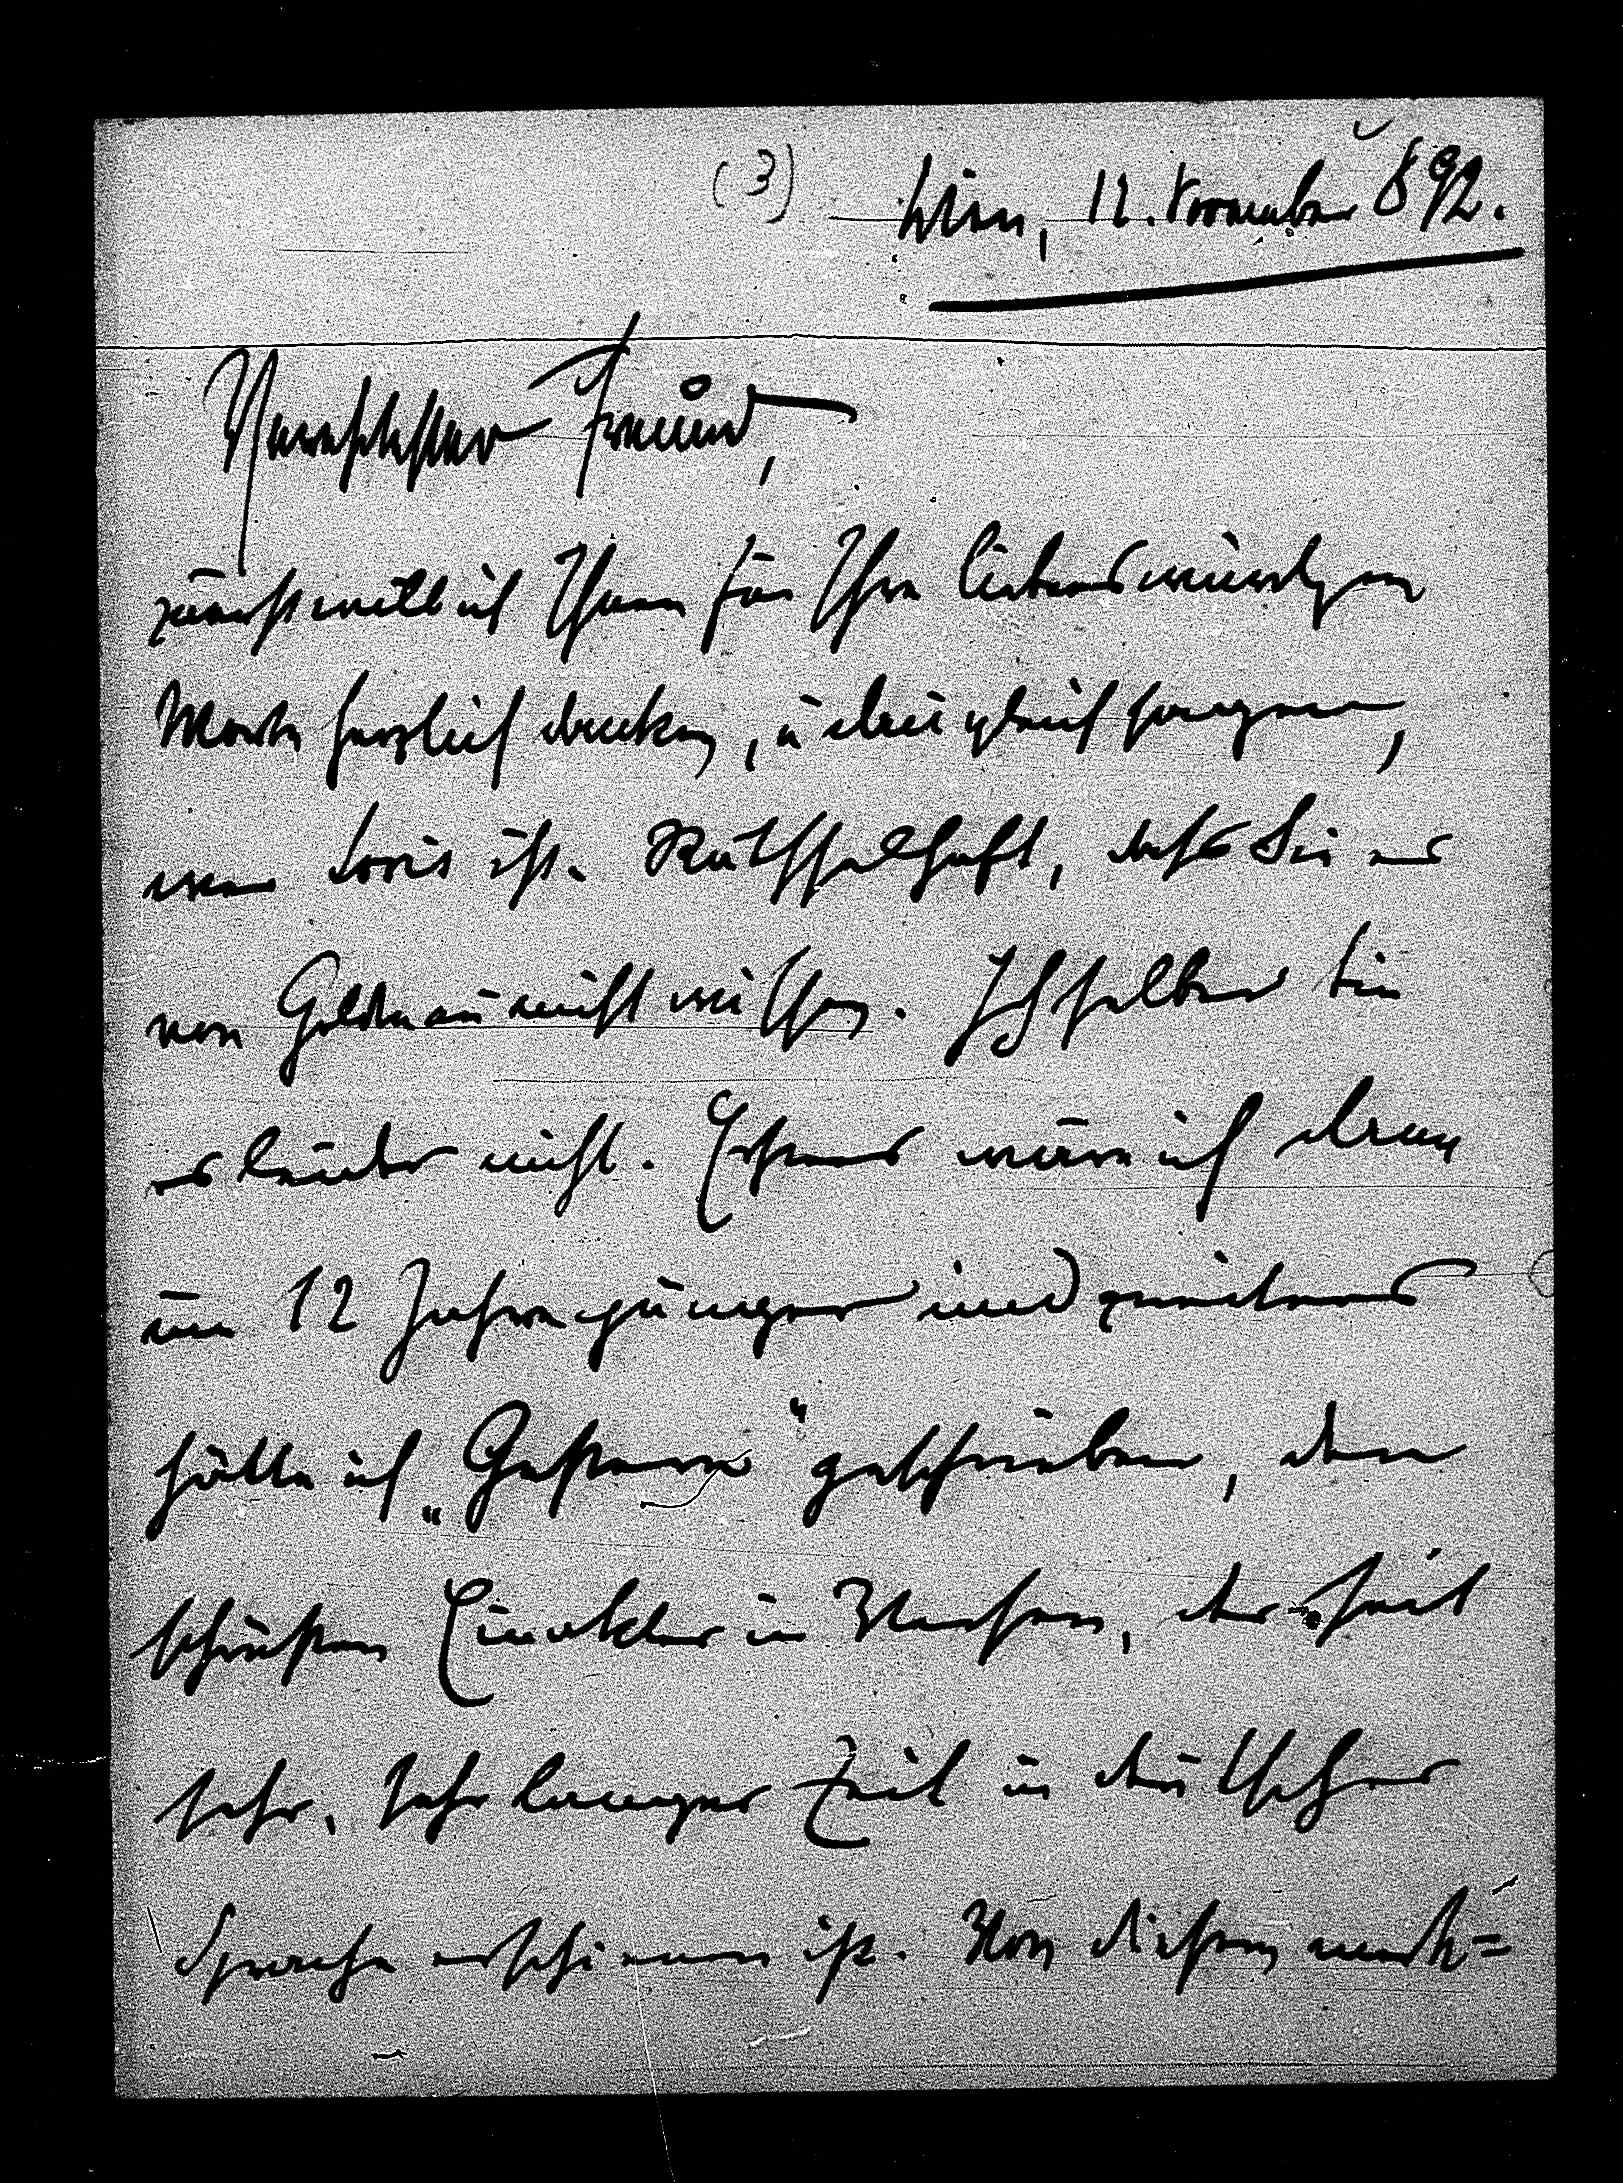 (3) Wien, 12. November 892.
Verehrtester Freund,
zunächst will ich Ihnen für Ihre liebenswürdigen
Worte herzlich danken, u dann gleich sagen,
wer Loris ist. Räthselhaft, daß Sie es
von Goldmann nicht wissen. Ich selber bin
es leider nicht. Erstens wäre ich dann
um 12 Jahre jünger und zweitens
hätte ich „Gestern“ geschrieben, den
schönsten Einakter in Versen, der seit
sehr, sehr langer Zeit in deutscher
Sprache erschienen ist. Von diesem merk=